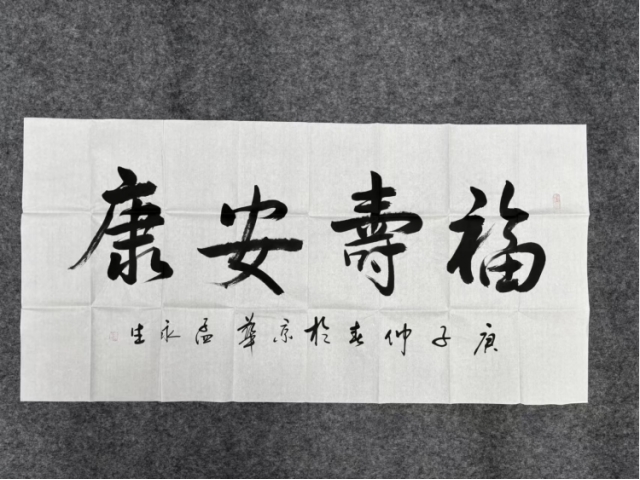 福壽安康
庚子仲春於京華孟永生